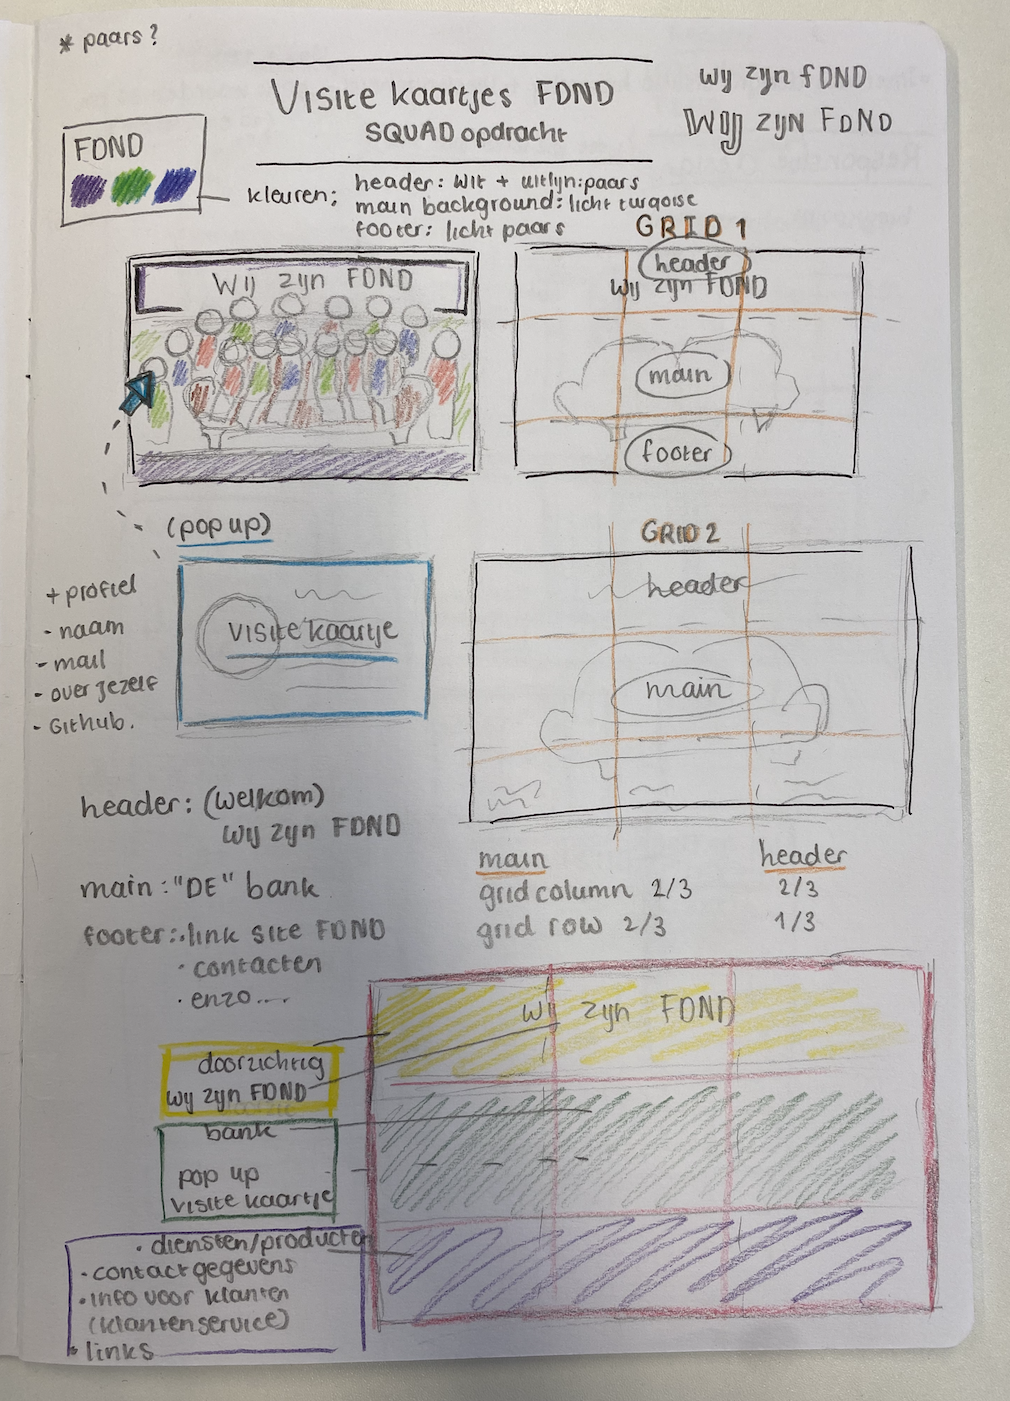 * paars?
Visite kaartjes FDND
SQUAD opdracht
wij zijn fDND
Wij zijn FDND
FDND
kleuren;
header: wit + uitlijn:paars
main background: licht turqoise
footer: licht paars
GRID 1
Wij zijn FDND
header
Wij zijn FDND
main
footer
(pop up)
GRID 2
header
main
+ profiel
- naam
- mail
- over jezelf
- Github.
visite kaartje
header: (welkom)
wij zijn FDND
main: "DE" bank
footer: . link site FDND
· contacten
· enzo....
main
header
grid column 2/3
2/3
grid row 2/3
1/3
wij zijn FDND
doorzichtig
wij zijn FDND
bank
pop up
visite kaartje
· diensten/producten
· contactgegevens
· info voor klanten
(klantenservice)
· links